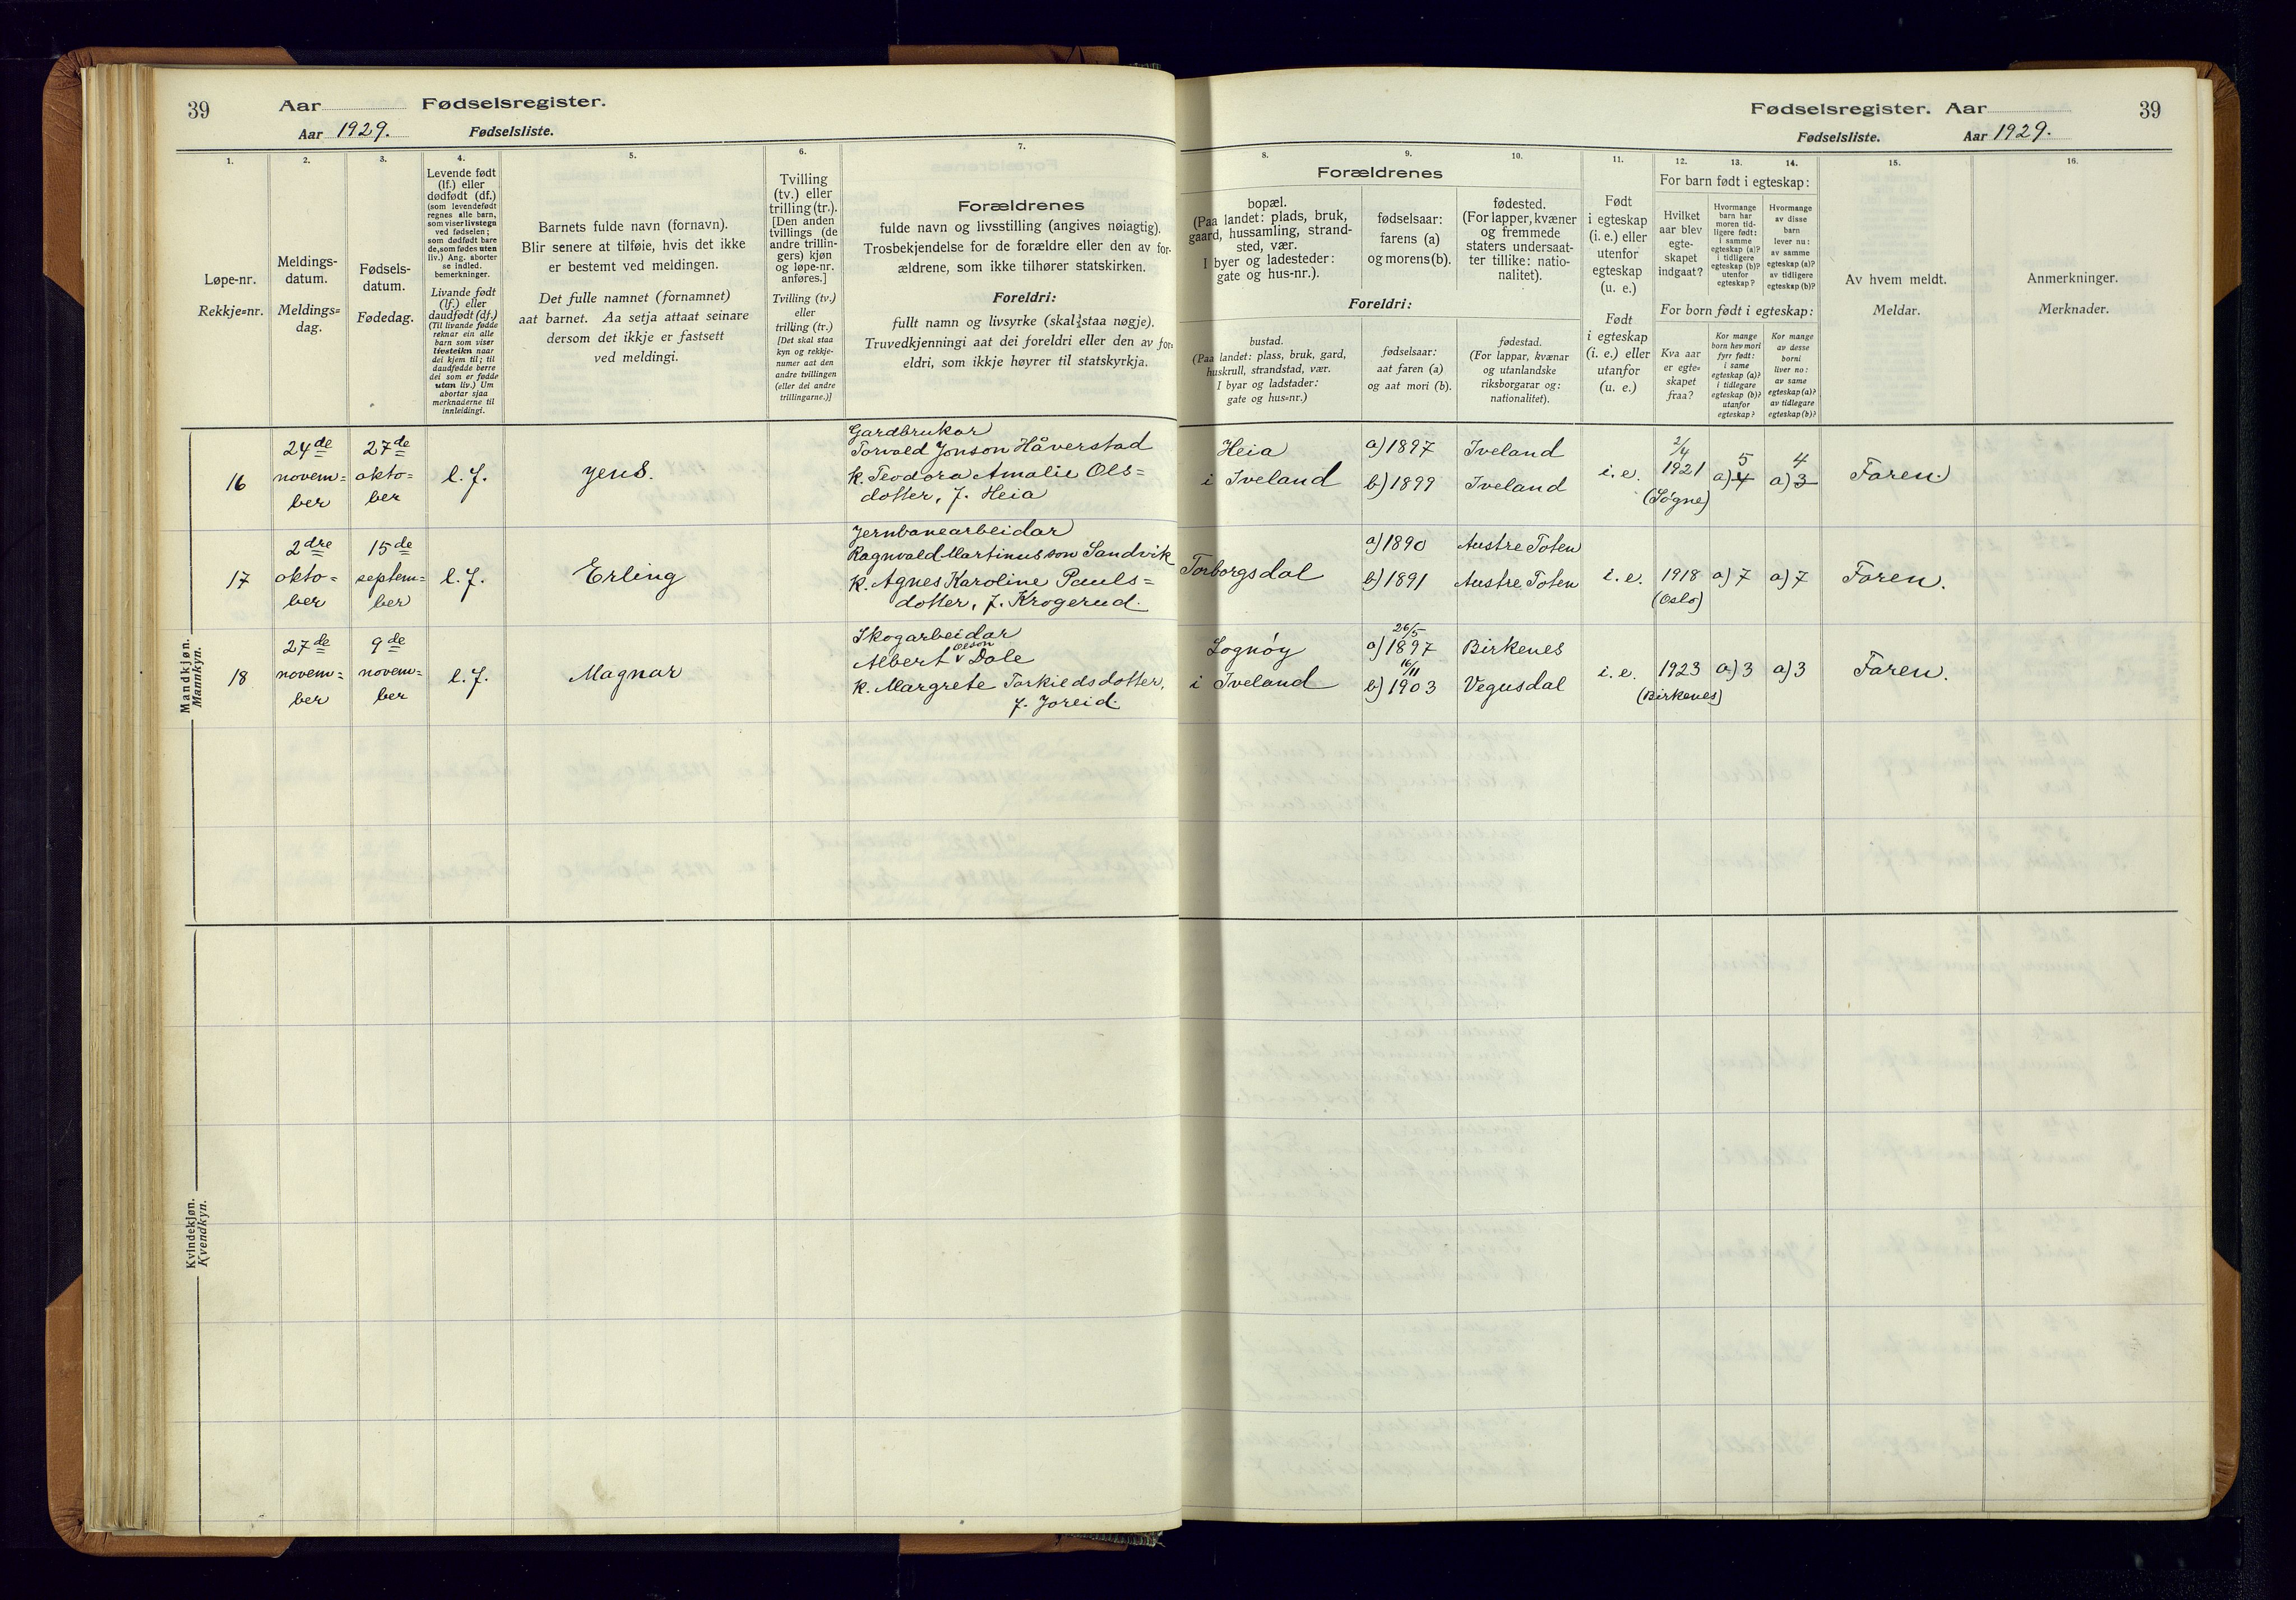 39
Aar
Fødselsregister.
Aar 1929.
Fødselsliste.
1.
Løpe-nr.
Rekkje=nr.
2.
Meldings-
datum.
Meldings=
dag.
3.
Fødsels-
datum.
Fødedag.
4.
Levende født
(lf.) eller
dødfødt (df.)
(som levendefødt
regnes alle barn,
som viser livstegn
ved fødselen;
som dødfødt bare
de, som fødes uten
liv.) Ang. aborter
se indled.
bemerkninger.
Livande født
(lf.) eller
daudfødt (df.)
(Til livande fødde
reknar ein alle
barn som viser
livsteikn naar
dei kjem til; til
daudfødde berre
dei som er fødde
utan liv.) Um
abortar sjaa
merknaderne til
innleidingi.
5.
Barnets fulde navn (fornavn).
Blir senere at tilføie, hvis det ikke
er bestemt ved meldingen.
Det fulle namnet (fornamnet)
aat barnet. Aa setja attaat seinare
dersom det ikkje er fastsett
ved meldingi.
6.
Tvilling
(tv.) eller
trilling (tr.).
[Den anden
tvillings (de
andre trillin-
gers) kjøn
og løpe-nr.
anføres.]
Tvilling (tv.)
eller
trilling (tr.)
[Det skal staa
kyn og rekkje-
numer aat den
andre tvillingen
(eller dei andre
trillingarne.)]
7.
Forældrenes
fulde navn og livsstilling (angives nøiagtig).
Trosbekjendelse for de forældre eller den av for-
ældrene, som ikke tilhører statskirken.
Foreldri:
fullt namn og livsyrke (skal staa nøgje).
Truvedkjenningi aat dei foreldri eller den av for-
eldri, som ikkje høyrer til statskyrkja.
Fødselsregister. Aar
39
Fødselsliste.
Aar 1929.
8.
Forældrenes
bopæl.
(Paa landet: plads, bruk,
gaard, hussamling, strand-
sted, vær.
I byer og ladesteder:
gate og hus-nr.).
Foreldri:
bustad.
(Paa landet: plass, bruk, gard,
huskrull, strandstad, vær.
I byar og ladstader:
gate og hus=nr.)
9.
fødselsaar:
farens (a)
og morens (b).
fødselsaar:
aat faren (a)
og aat mori (b).
10.
fødested.
(For lapper, kvæner
og fremmede
staters undersaat-
ter tillike: natio-
nalitet).
fødestad.
(For lappar, kvænar
og utanlandske
riksborgarar og:
nationalitet).
11.
Født
i egteskap
(i. e.) eller
utenfor
egteskap
(u. e.)
Født
i egteskap
(i. e.) eller
utanfor
(u. e.)
For barn født i egteskap:
12.
Hvilket
aar blev
egte-
skapet
indgaat?
13.
Hvormange
barn har
moren tid-
ligere født:
i samme
egteskap (a)?
i tidligere
egteskap (b)?
utenfor
egteskap?
14.
Hvormange
av disse
barn
lever nu:
av samme
egteskap (a)?
av tidligere
egteskap (b)?
For born født i egteskap:
Kva aar
er egte=
skapet
fraa?
Kor mange
born hev mori
fyrr født:
i same
egteskap (a)?
i tidlegare
egteskap (b)?
utanfor
egteskap?
Kor mange
av desse
borni
liver no:
av same
egteskap (a)?
av tidlegare
egteskap (b)?
15.
Av hvem meldt.
Meldar.
16.
Anmerkninger.
Merknader.
Mandkjøn.
Mannkyn.
16
24de
novem=
ber
27de
okto=
ber
l. f.
Jens.
Gardbrukar
Torvald Jonson Håverstad
k. Teodora Amalie Ols=
dotter, f. Heia
Heia
i Iveland
a) 1897
b) 1899
Iveland
Iveland
i. e.
2/4
1921
(Søgne)
5
a) 4
4
a) 3
Faren.
17
2dre
okto=
ber
15de
septem=
ber
l. f.
Erling
Jernbanearbeidar
Ragnvald Martinusson Sandvik
k. Agnes Karoline Pauls=
dotter, f. Krogerud.
Torborgsdal
a) 1890
b) 1891
Austre Toten
Austre Toten
i. e.
1918
(Oslo)
a) 7
a) 7
Faren.
18
27de
novem=
ber
9de
novem=
ber
l. f.
Magnar
Skogarbeidar
Olson
Albert v Dale
k. Margrete Torkieldsdotter,
f. Joreid.
Lognøy
i Iveland
26/5
a) 1897
16/11
b) 1903
Birkenes
Vegusdal
i. e.
1923
(Birkenes)
a) 3
a) 3
Faren.
Kvindekjøn.
Kvendkyn.